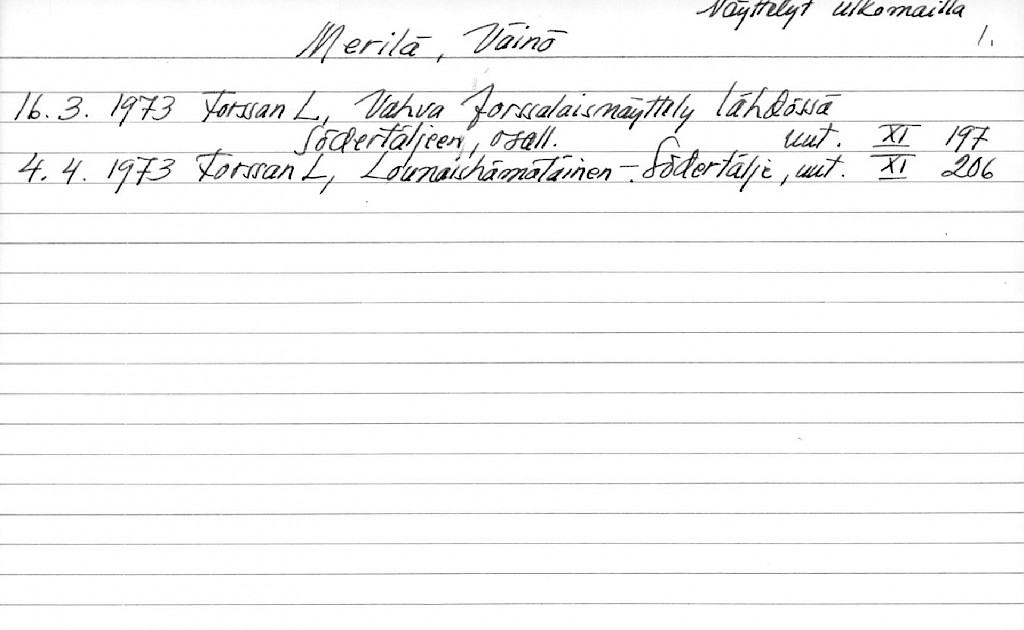 Näyttelyt ulkomailla
Merilä, Väinö 1.
16.3. 1973 Forssan L, Vahva forssalaisnäyttely lähdössä
Södertäljeen, osall. uut. XI 197
4.4. 1973 Forssan L, Lounaishämäläinen - Södertälje, uut. XI 206